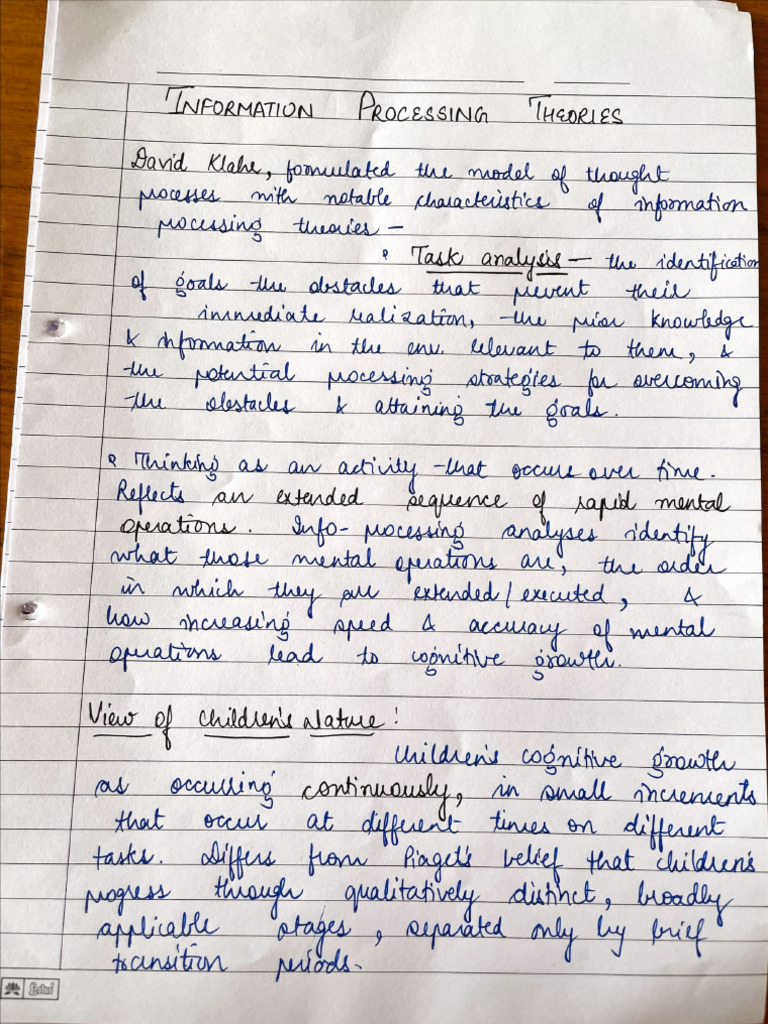 INFORMATION PROCESSING THEORIES
David Klahe, formulated the model of thought
processes with notable characteristics of information
processing theories –
• Task analysis – the identification
of goals the obstacles that prevent their
immediate realization, the prior knowledge
& information in the env. relevant to them, &
the potential processing strategies for overcoming
the obstacles & attaining the goals.
• Thinking as an activity that occurs over time.
Reflects an extended sequence of rapid mental
operations. Info-processing analyses identify
what those mental operations are, the order
in which they are extended/executed, &
how increasing speed & accuracy of mental
operations lead to cognitive growth.
View of Children's Nature:
Children's cognitive growth
as occurring continuously, in small increments
that occur at different times on different
tasks. Differs from Piaget's belief that children's
progress through qualitatively distinct, broadly
applicable stages, separated only by brief
transition periods.